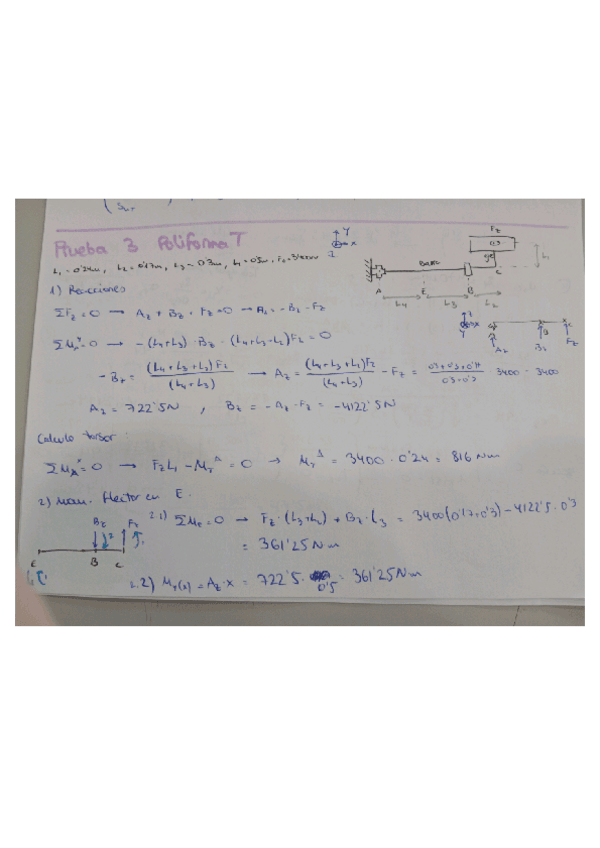 Prueba 3 Poliforma T
L₁ = 0'24m, L₂ = 0'17m, L₃ = 0.3m, L₄ = 0.5m, Fz = 3400N
1) Reacciones
ΣFz = 0 → Az + Bz + Fz = 0 → Az = -Bz - Fz
ΣMᴬ = 0 → -(L₄+L₃) · Bz - (L₄+L₃+L₂)Fz = 0
-Bz = (L₄+L₃+L₂)Fz / (L₄+L₃) → Az = (L₄+L₃+L₂)Fz / (L₄+L₃) - Fz = 3400 - 3400
Az = 722'5N , Bz = -Az - Fz = -4122'5N
Calculo torsor:
ΣMᴬˣ = 0 → FzL₁ - Mᴛᴬ = 0 → Mᴛᴬ = 3400 · 0'24 = 816 Nm
2) Mom. Flector en E.
2.1) ΣMᴇ = 0 → Fz · (L₃+L₂) + Bz · L₃ = 3400(0'17+0'3) - 4122'5 · 0'3
= 361'25 N·m
2.2) Mʏ(x) = Az · x = 722'5 · 0'5 = 361'25 N·m
Y
X
Z
Fz
0.3
L₁
A
E
B
C
L₄
L₃
L₂
Az
Bz
Fz
Bz
Fz
E
B
C